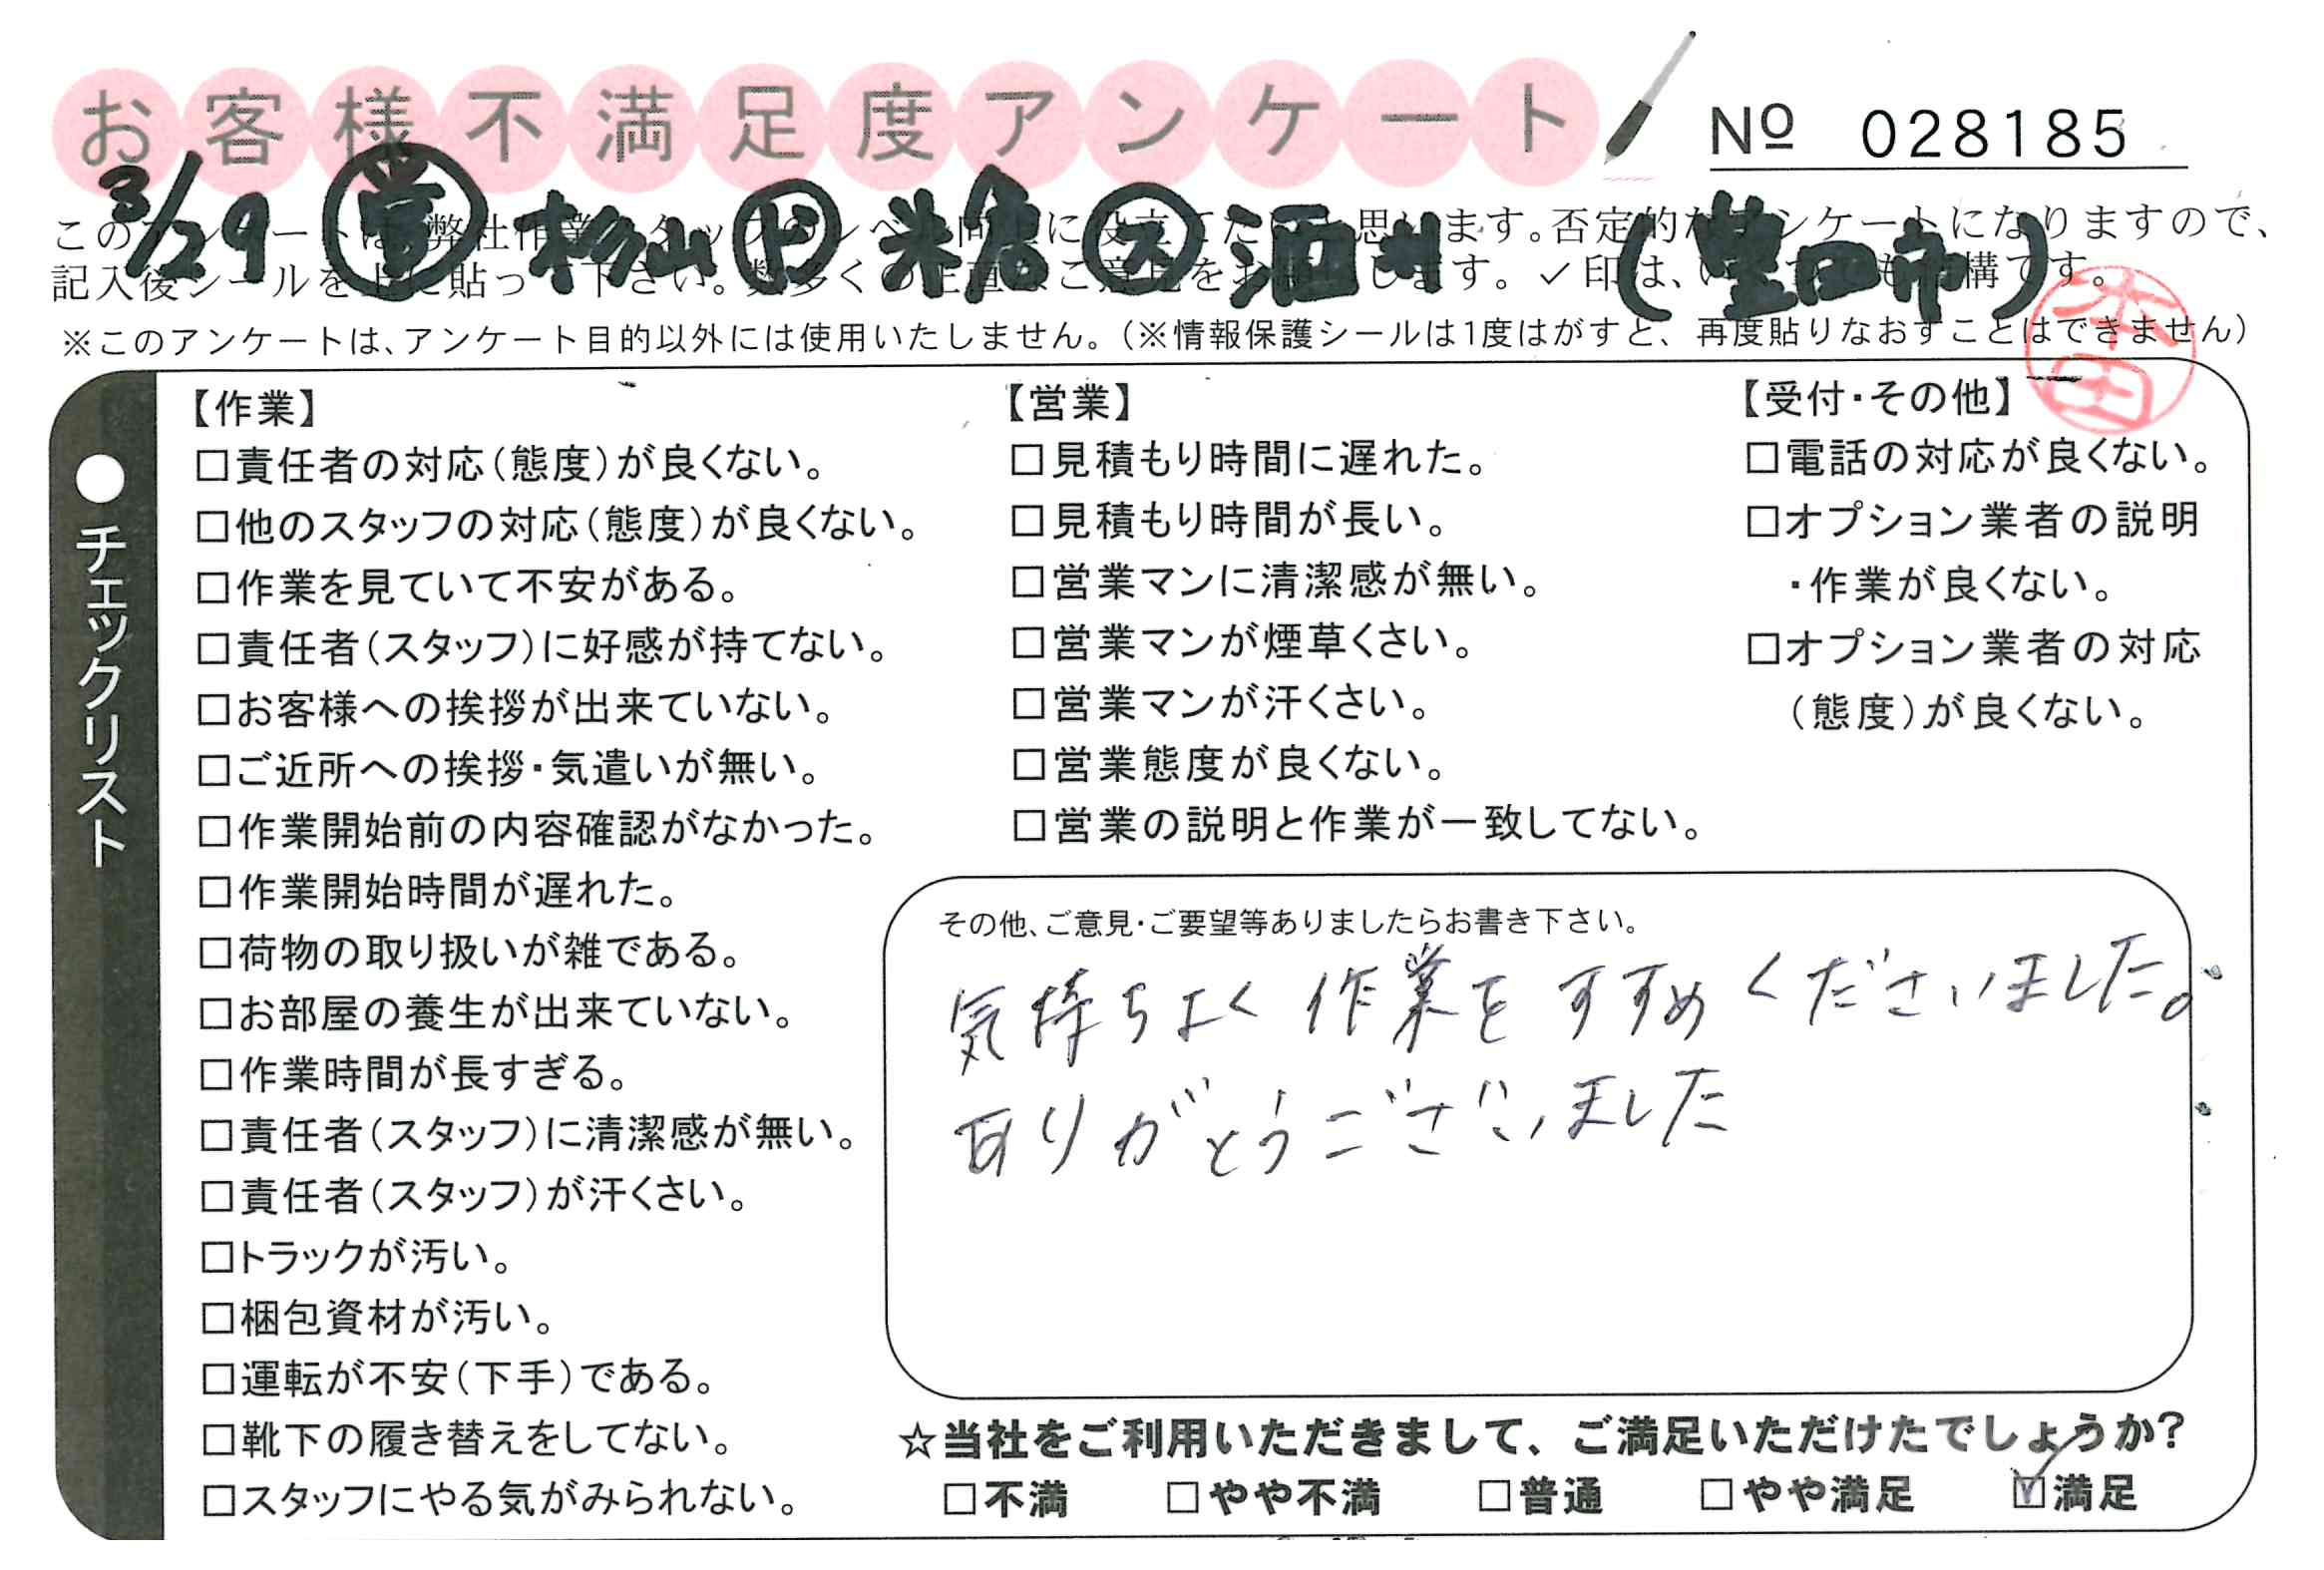 お客様不満足度アンケート
№ 028185
3/29 ㊂ 杉山 ド 米倉 ス 酒井 (豊田市)
※このアンケートは、アンケート目的以外には使用いたしません。(※情報保護シールは1度はがすと、再度貼りなおすことはできません)
本田
●チェックリスト
【作業】
□責任者の対応(態度)が良くない。
□他のスタッフの対応(態度)が良くない。
□作業を見ていて不安がある。
□責任者(スタッフ)に好感が持てない。
□お客様への挨拶が出来ていない。
□ご近所への挨拶・気遣いが無い。
□作業開始前の内容確認がなかった。
□作業開始時間が遅れた。
□荷物の取り扱いが雑である。
□お部屋の養生が出来ていない。
□作業時間が長すぎる。
□責任者(スタッフ)に清潔感が無い。
□責任者(スタッフ)が汗くさい。
□トラックが汚い。
□梱包資材が汚い。
□運転が不安(下手)である。
□靴下の履き替えをしてない。
□スタッフにやる気がみられない。
【営業】
□見積もり時間に遅れた。
□見積もり時間が長い。
□営業マンに清潔感が無い。
□営業マンが煙草くさい。
□営業マンが汗くさい。
□営業態度が良くない。
□営業の説明と作業が一致してない。
【受付・その他】
□電話の対応が良くない。
□オプション業者の説明
・作業が良くない。
□オプション業者の対応
(態度)が良くない。
その他、ご意見・ご要望等ありましたらお書き下さい。
気持ちよく作業をすすめくださいました。
ありがとうございました
☆当社をご利用いただきまして、ご満足いただけたでしょうか?
□不満 □やや不満 □普通 □やや満足 ☑満足